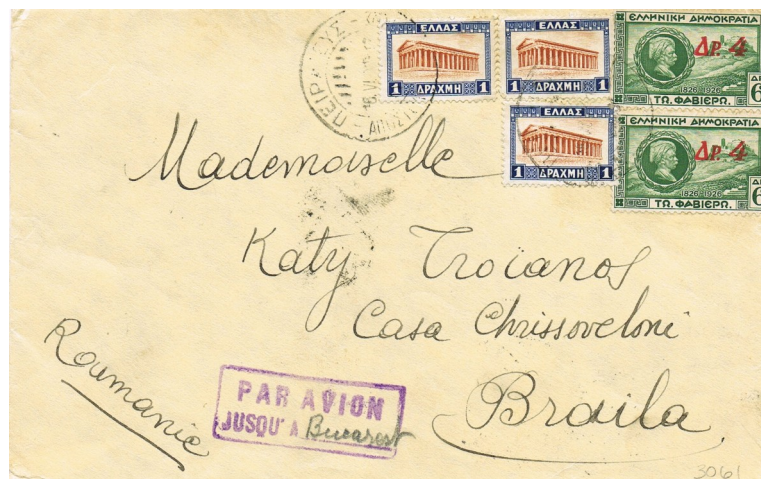 ΠΕΙΡΑΙΕΥΣ
ΕΛΛΑΣ
1 ΔΡΑΧΜΗ 1
ΕΛΛΑΣ
1 ΔΡΑΧΜΗ 1
ΕΛΛΑΣ
1 ΔΡΑΧΜΗ 1
ΕΛΛΗΝΙΚΗ ΔΗΜΟΚΡΑΤΙΑ
ΔΡ. 4
1826-1926
ΤΩ. ΦΑΒΙΕΡΩ. 6
ΕΛΛΗΝΙΚΗ ΔΗΜΟΚΡΑΤΙΑ
ΔΡ. 4
1826-1926
ΤΩ. ΦΑΒΙΕΡΩ. 6
Mademoiselle
Katy Troïanos
Casa Chrissoveloni
Braila
Roumanie
PAR AVION
JUSQU'A Bucarest
3061